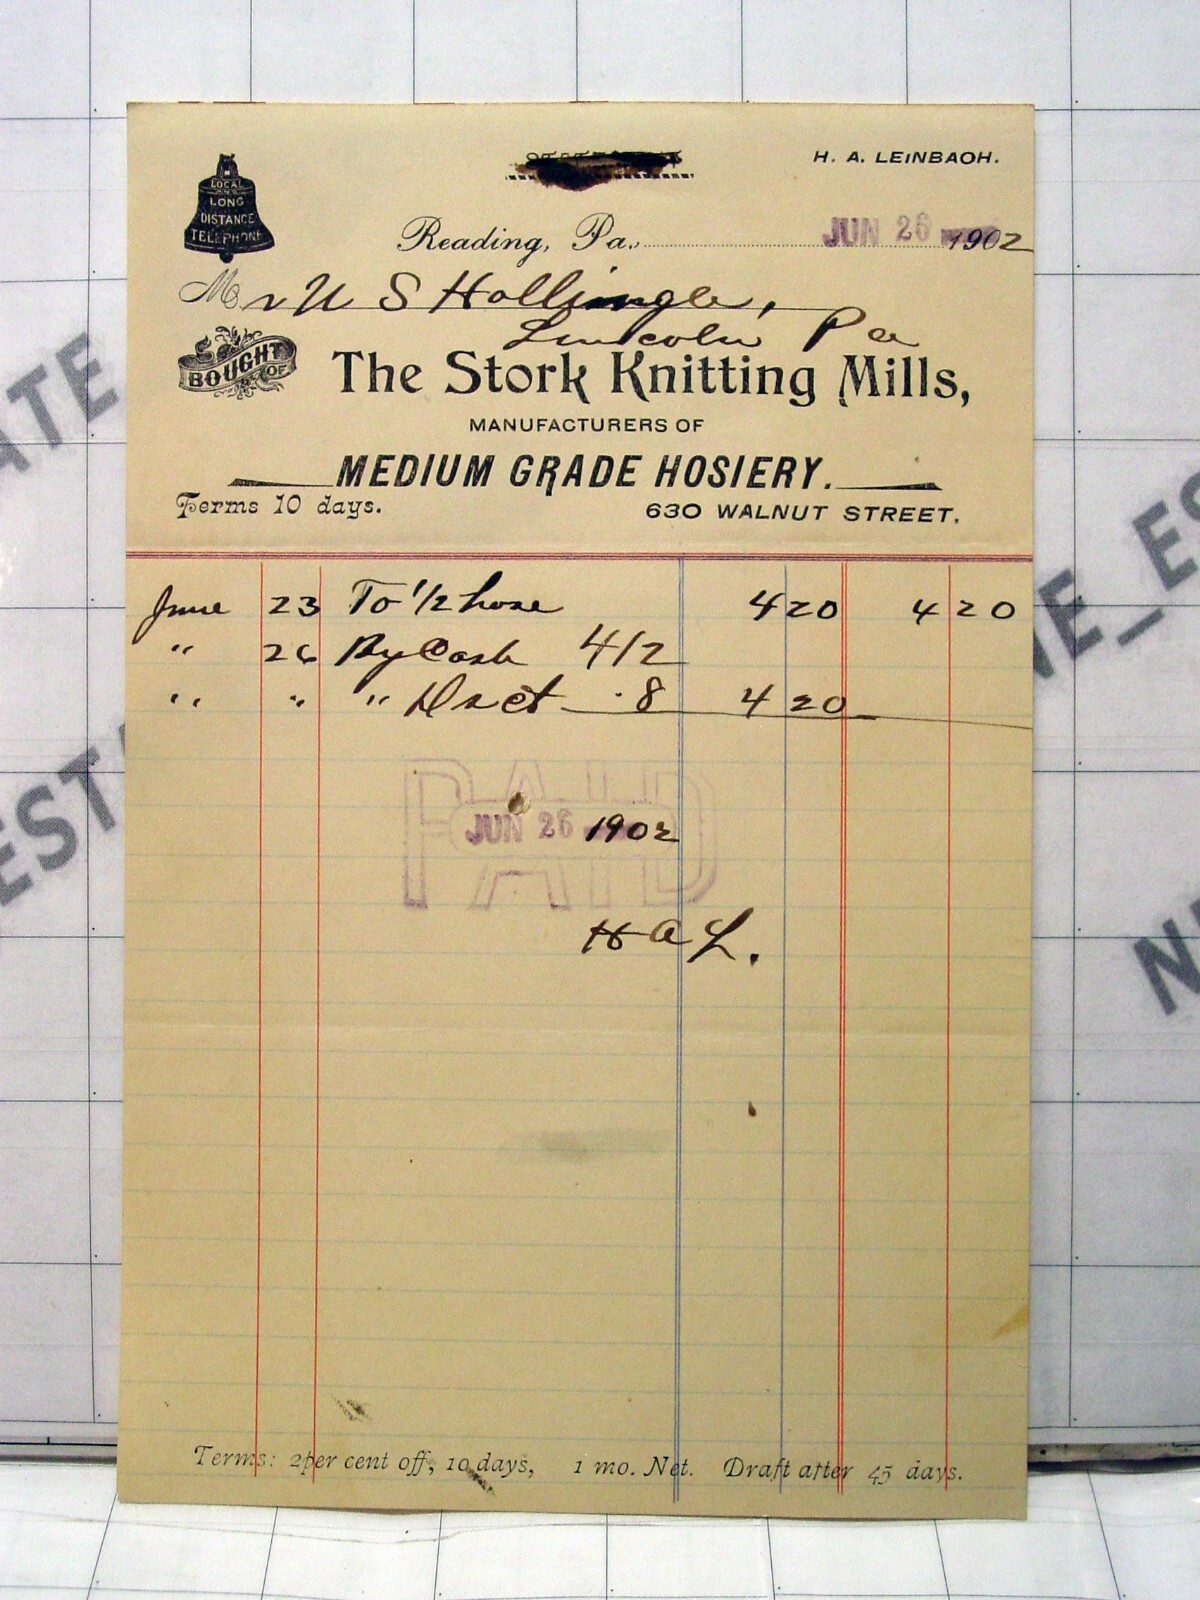 H. A. LEINBACH.
LOCAL
AND
LONG
DISTANCE
TELEPHONE
Reading, Pa., JUN 26 1902
Mr U S Hollingle,
Lincoln Pa
BOUGHT OF
The Stork Knitting Mills,
MANUFACTURERS OF
MEDIUM GRADE HOSIERY.
Terms 10 days. 630 WALNUT STREET.
June 23 To 1/2 hose 4 20 4 20
" 26 By Cash 412
" " " Disct .8 4 20
PAID
JUN 26 1902
H A L.
Terms: 2 per cent off, 10 days, 1 mo. Net. Draft after 45 days.